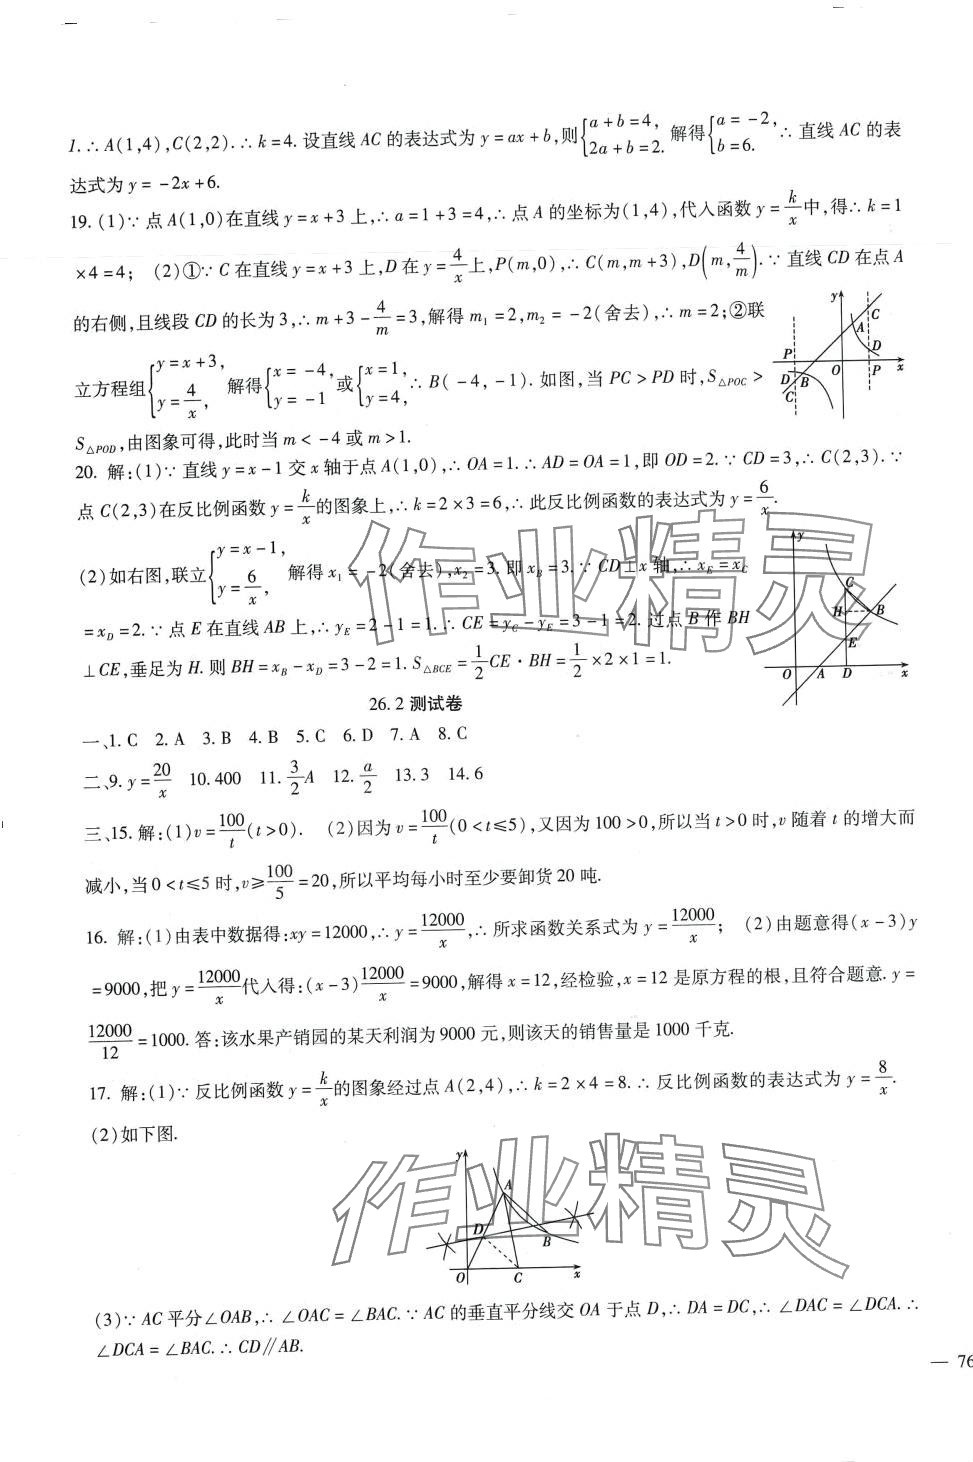 1. ∴ A(1,4),C(2,2). ∴ k=4. 设直线 AC 的表达式为 y=ax+b,则{a+b=4, 2a+b=2. 解得{a=-2, b=6. ∴ 直线 AC 的表
达式为 y=-2x+6.
19. (1)∵ 点 A(1,0)在直线 y=x+3 上,∴ a=1+3=4,∴ 点 A 的坐标为(1,4),代入函数 y=k/x中,得∴ k=1
×4=4; (2)①∵ C 在直线 y=x+3 上,D 在 y=4/x上,P(m,0),∴ C(m,m+3),D(m,4/m). ∵ 直线 CD 在点 A
的右侧,且线段 CD 的长为 3,∴ m+3-4/m=3,解得 m₁=2,m₂=-2(舍去),∴ m=2;②联
立方程组{y=x+3, y=4/x, 解得{x=-4, y=-1 或{x=1, y=4, ∴ B(-4,-1). 如图,当 PC>PD 时,S△POC>
S△POD,由图象可得,此时当 m<-4 或 m>1.
y
C
A
D
P
D
B
C
O
P
x
20. 解:(1)∵ 直线 y=x-1 交 x 轴于点 A(1,0),∴ OA=1. ∴ AD=OA=1,即 OD=2. ∵ CD=3,∴ C(2,3). ∵
点 C(2,3)在反比例函数 y=k/x的图象上,∴ k=2×3=6,∴ 此反比例函数的表达式为 y=6/x.
(2)如右图,联立{y=x-1, y=6/x, 解得 x₁=-2(舍去),x₂=3. 即 xB=3. ∵ CD⊥x 轴,∴ xE=xC
=xD=2. ∵ 点 E 在直线 AB 上,∴ yE=2-1=1. ∴ CE=yC-yE=3-1=2. 过点 B 作 BH
⊥CE,垂足为 H. 则 BH=xB-xD=3-2=1. S△BCE=1/2CE·BH=1/2×2×1=1.
y
C
H
B
E
O
A
D
x
作业精灵
26.2 测试卷
一、1. C 2. A 3. B 4. B 5. C 6. D 7. A 8. C
二、9. y=20/x 10. 400 11. 3/2A 12. a/2 13. 3 14. 6
三、15. 解:(1)v=100/t(t>0). (2)因为 v=100/t(0<t≤5),又因为 100>0,所以当 t>0 时,v 随着 t 的增大而
减小,当 0<t≤5 时,v≥100/5=20,所以平均每小时至少要卸货 20 吨.
16. 解:(1)由表中数据得:xy=12000,∴ y=12000/x,∴ 所求函数关系式为 y=12000/x; (2)由题意得(x-3)y
=9000,把 y=12000/x代入得:(x-3)12000/x=9000,解得 x=12,经检验,x=12 是原方程的根,且符合题意. y=
12000/12=1000. 答:该水果产销园的某天利润为 9000 元,则该天的销售量是 1000 千克.
17. 解:(1)∵ 反比例函数 y=k/x的图象经过点 A(2,4),∴ k=2×4=8. ∴ 反比例函数的表达式为 y=8/x.
(2)如下图.
y
A
D
B
O
C
x
作业精灵
(3)∵ AC 平分∠OAB,∴ ∠OAC=∠BAC. ∵ AC 的垂直平分线交 OA 于点 D,∴ DA=DC,∴ ∠DAC=∠DCA. ∴
∠DCA=∠BAC. ∴ CD∥AB.
— 76